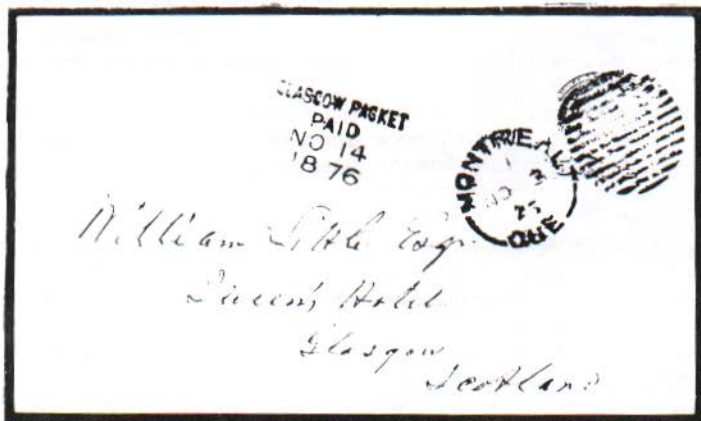 GLASGOW PACKET
PAID
NO 14
1876
MONTREAL
1
NO 3
QUE
William Little Esq
Queen's Hotel
Glasgow
Scotland